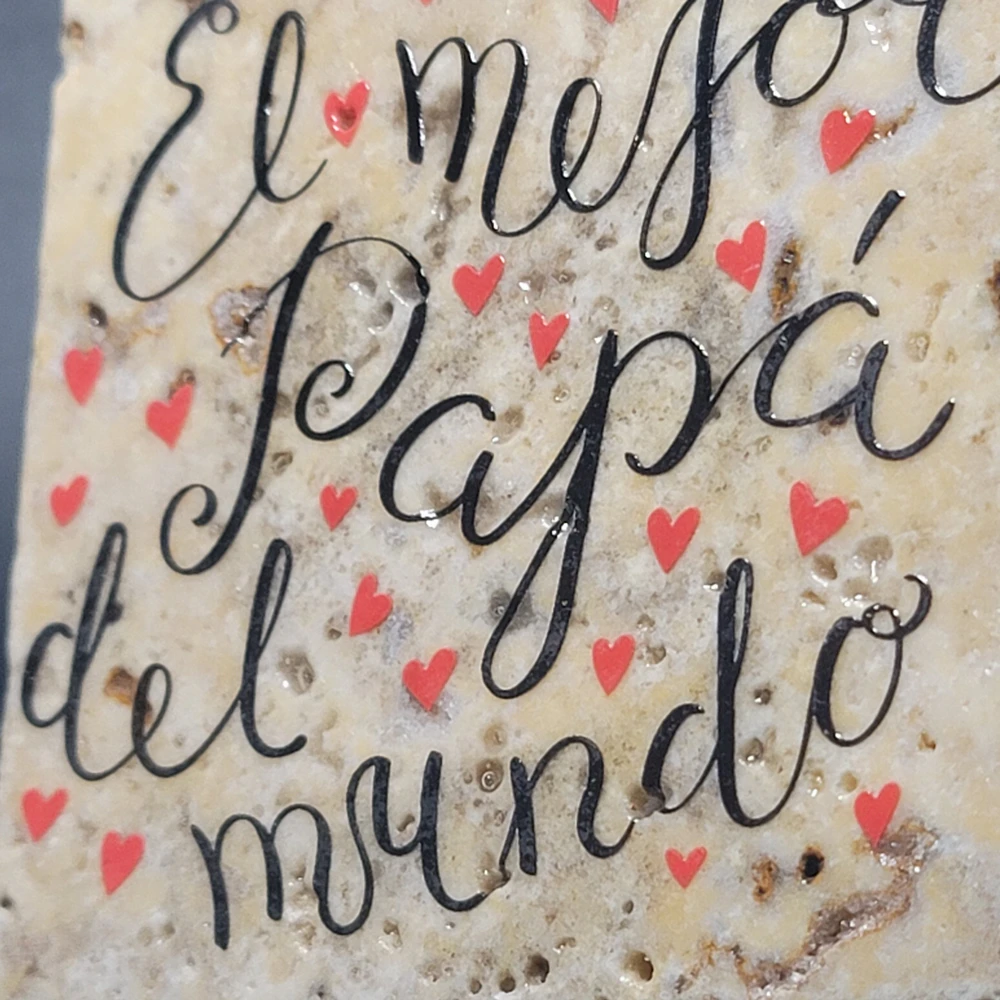 El mejor
Papá
del
mundo